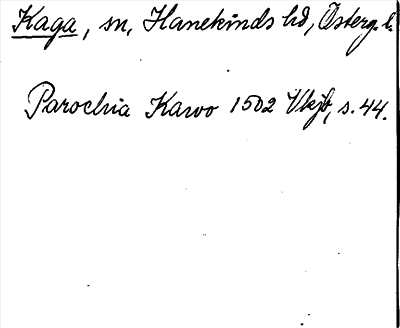 Kaga, sn, Hanekinds hd, Österg. l.
Parochia Kawo 1502 Vkjb, s. 44.